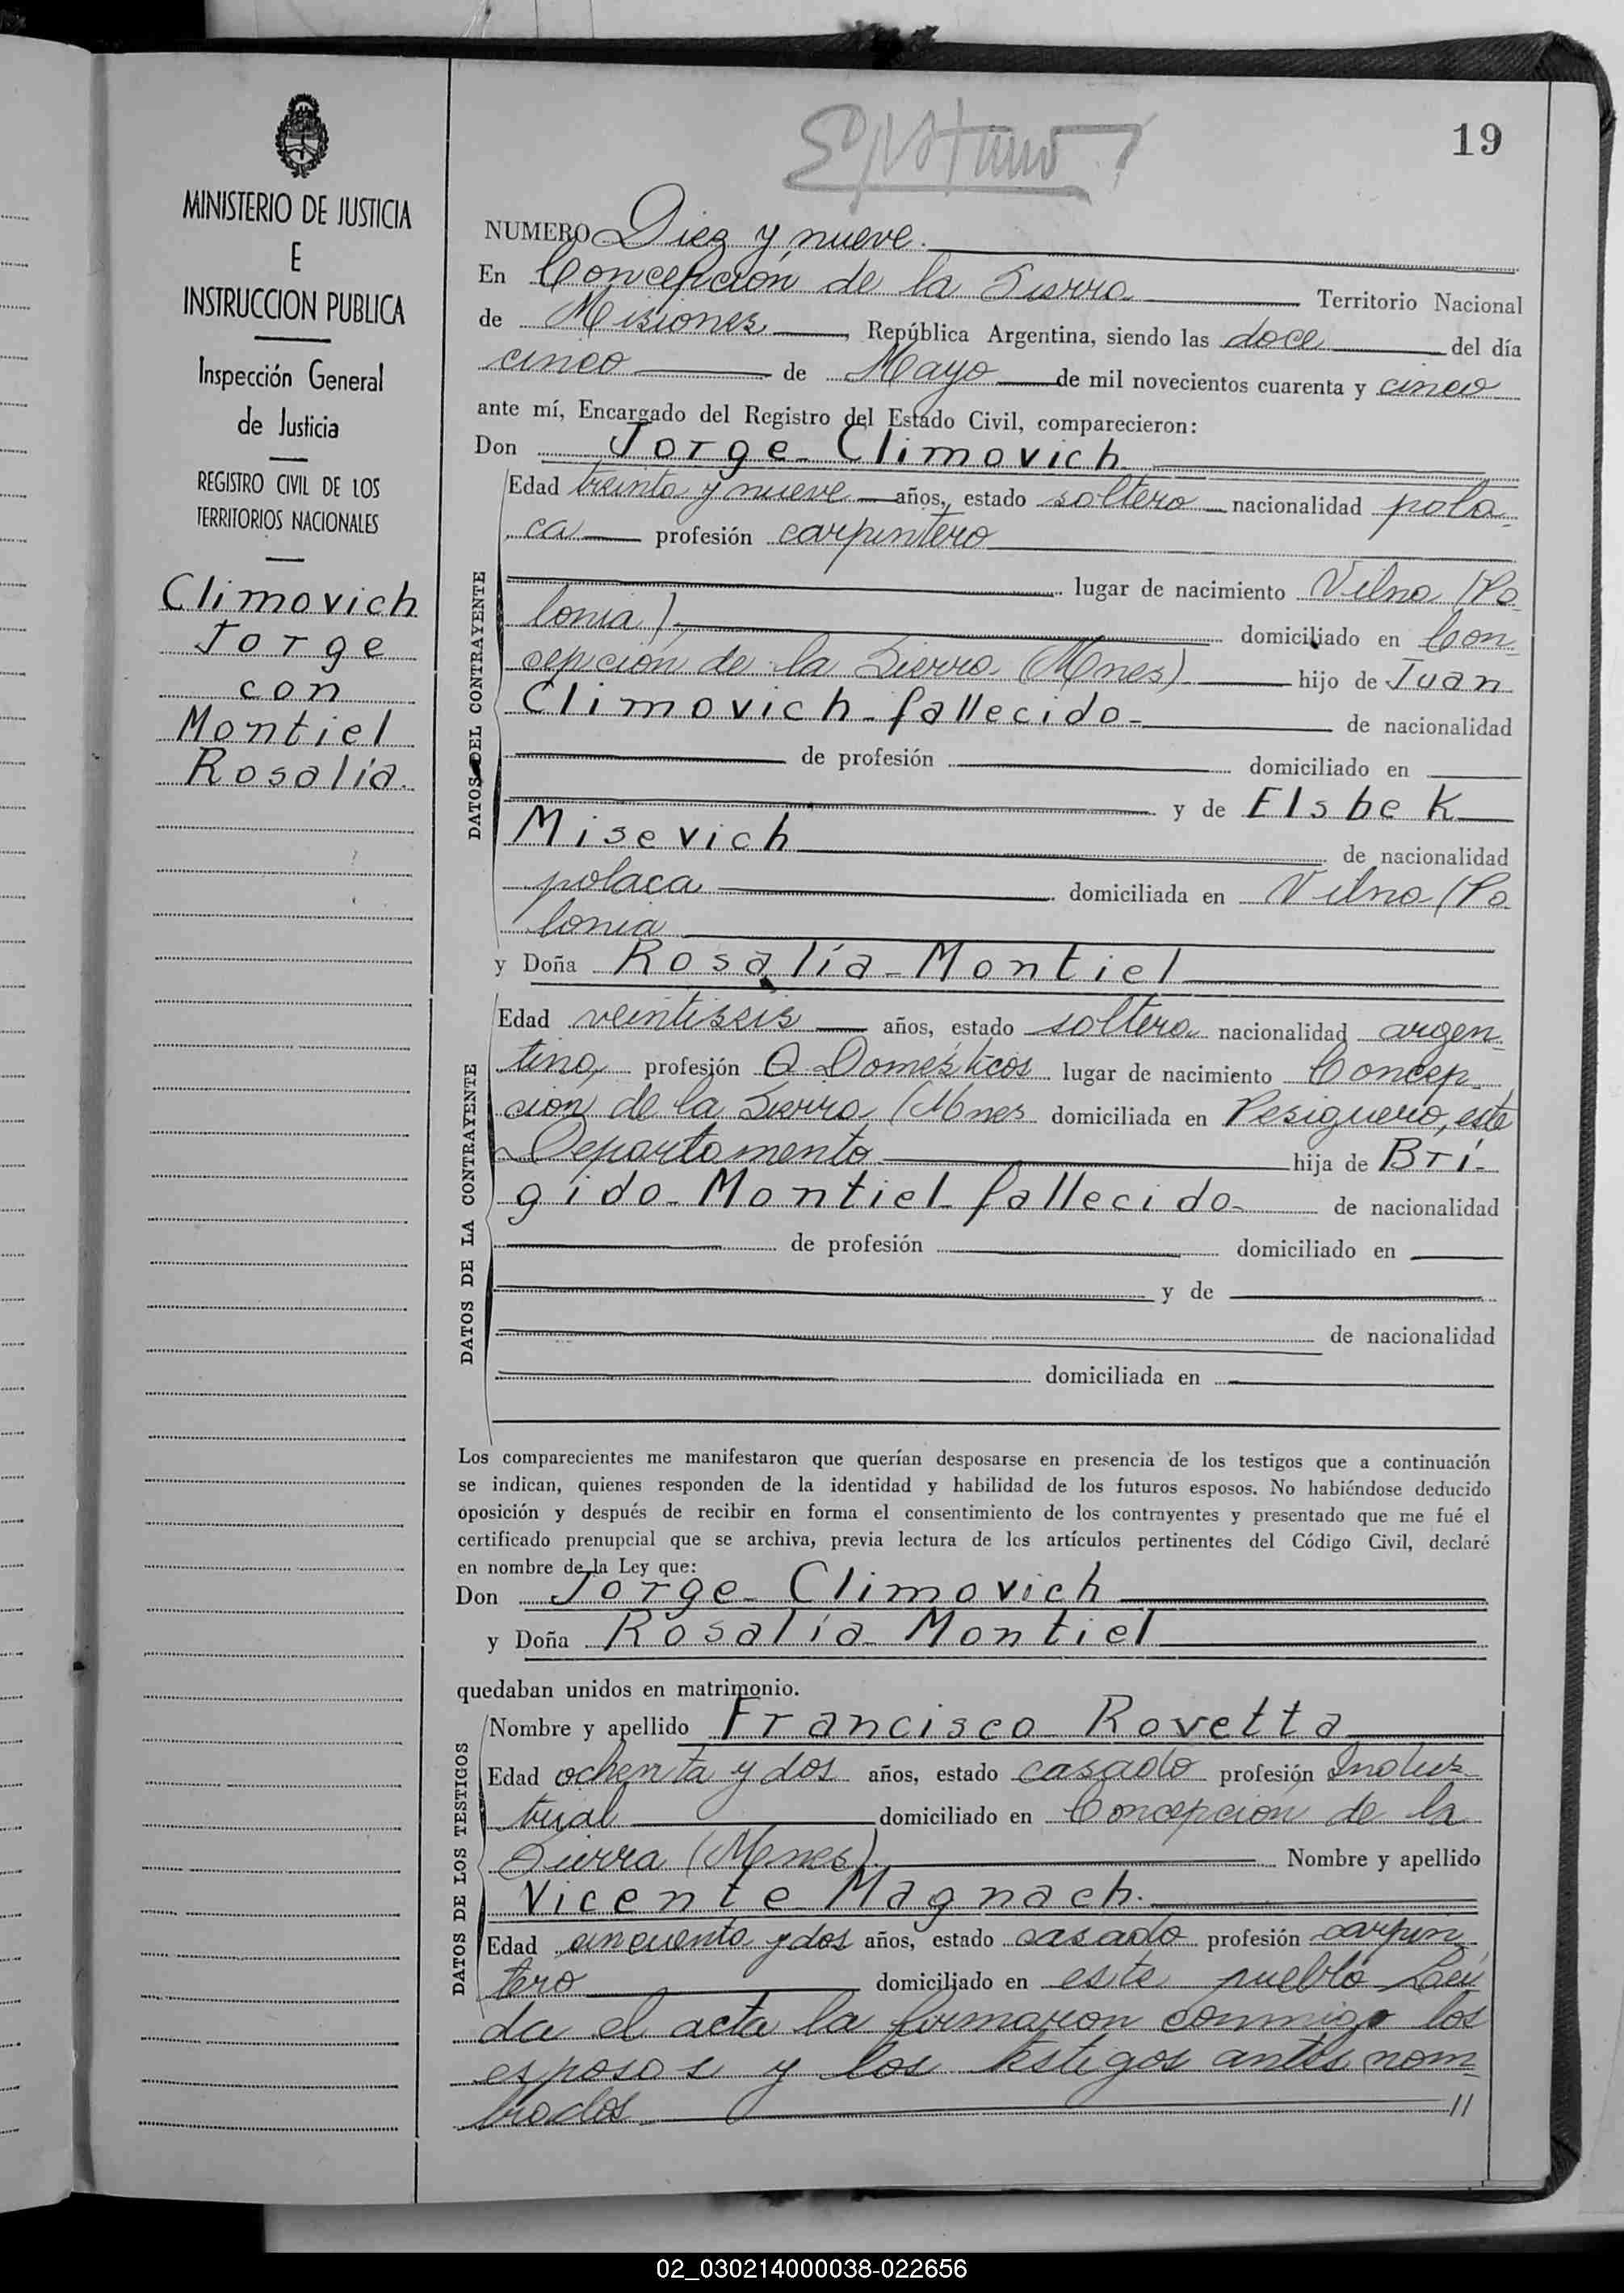 MINISTERIO DE JUSTICIA
E
INSTRUCCION PUBLICA
Inspección General
de Justicia
REGISTRO CIVIL DE LOS
TERRITORIOS NACIONALES
Climovich
Jorge
con
Montiel
Rosalía.
19
NUMERO Diez y nueve.
En Concepción de la Sierra Territorio Nacional
de Misiones, República Argentina, siendo las doce del día
cinco de Mayo de mil novecientos cuarenta y cinco
ante mí, Encargado del Registro del Estado Civil, comparecieron:
Don Jorge Climovich
DATOS DEL CONTRAYENTE
Edad treinta y nueve años, estado soltero nacionalidad pola-
ca profesión carpintero
lugar de nacimiento Vilna (Po-
lonia) domiciliado en Con-
cepción de la Sierra (Mnes) hijo de Juan
Climovich-fallecido- de nacionalidad
de profesión domiciliado en
y de Elsbek
Misevich de nacionalidad
polaca domiciliada en Vilna (Po-
lonia
y Doña Rosalía-Montiel
DATOS DE LA CONTRAYENTE
Edad veintiseis años, estado soltera nacionalidad argen-
tina, profesión Q. Domésticos lugar de nacimiento Concep-
ción de la Sierra (Mnes domiciliada en Pesiguero, este
Departamento hija de Brí-
gido-Montiel-fallecido- de nacionalidad
de profesión domiciliado en
y de
de nacionalidad
domiciliada en
Los comparecientes me manifestaron que querían desposarse en presencia de los testigos que a continuación
se indican, quienes responden de la identidad y habilidad de los futuros esposos. No habiéndose deducido
oposición y después de recibir en forma el consentimiento de los contrayentes y presentado que me fué el
certificado prenupcial que se archiva, previa lectura de los artículos pertinentes del Código Civil, declaré
en nombre de la Ley que:
Don Jorge-Climovich
y Doña Rosalía Montiel
quedaban unidos en matrimonio.
DATOS DE LOS TESTIGOS
Nombre y apellido Francisco Rovetta
Edad ochenta y dos años, estado casado profesión Indus-
trial domiciliado en Concepción de la
Sierra (Mnes). Nombre y apellido
Vicente Magnach.
Edad cincuenta y dos años, estado casado profesión carpin-
tero domiciliado en este pueblo Leí-
da el acta la firmaron conmigo los
esposos y los testigos antes nom-
brados. //
02_030214000038-022656